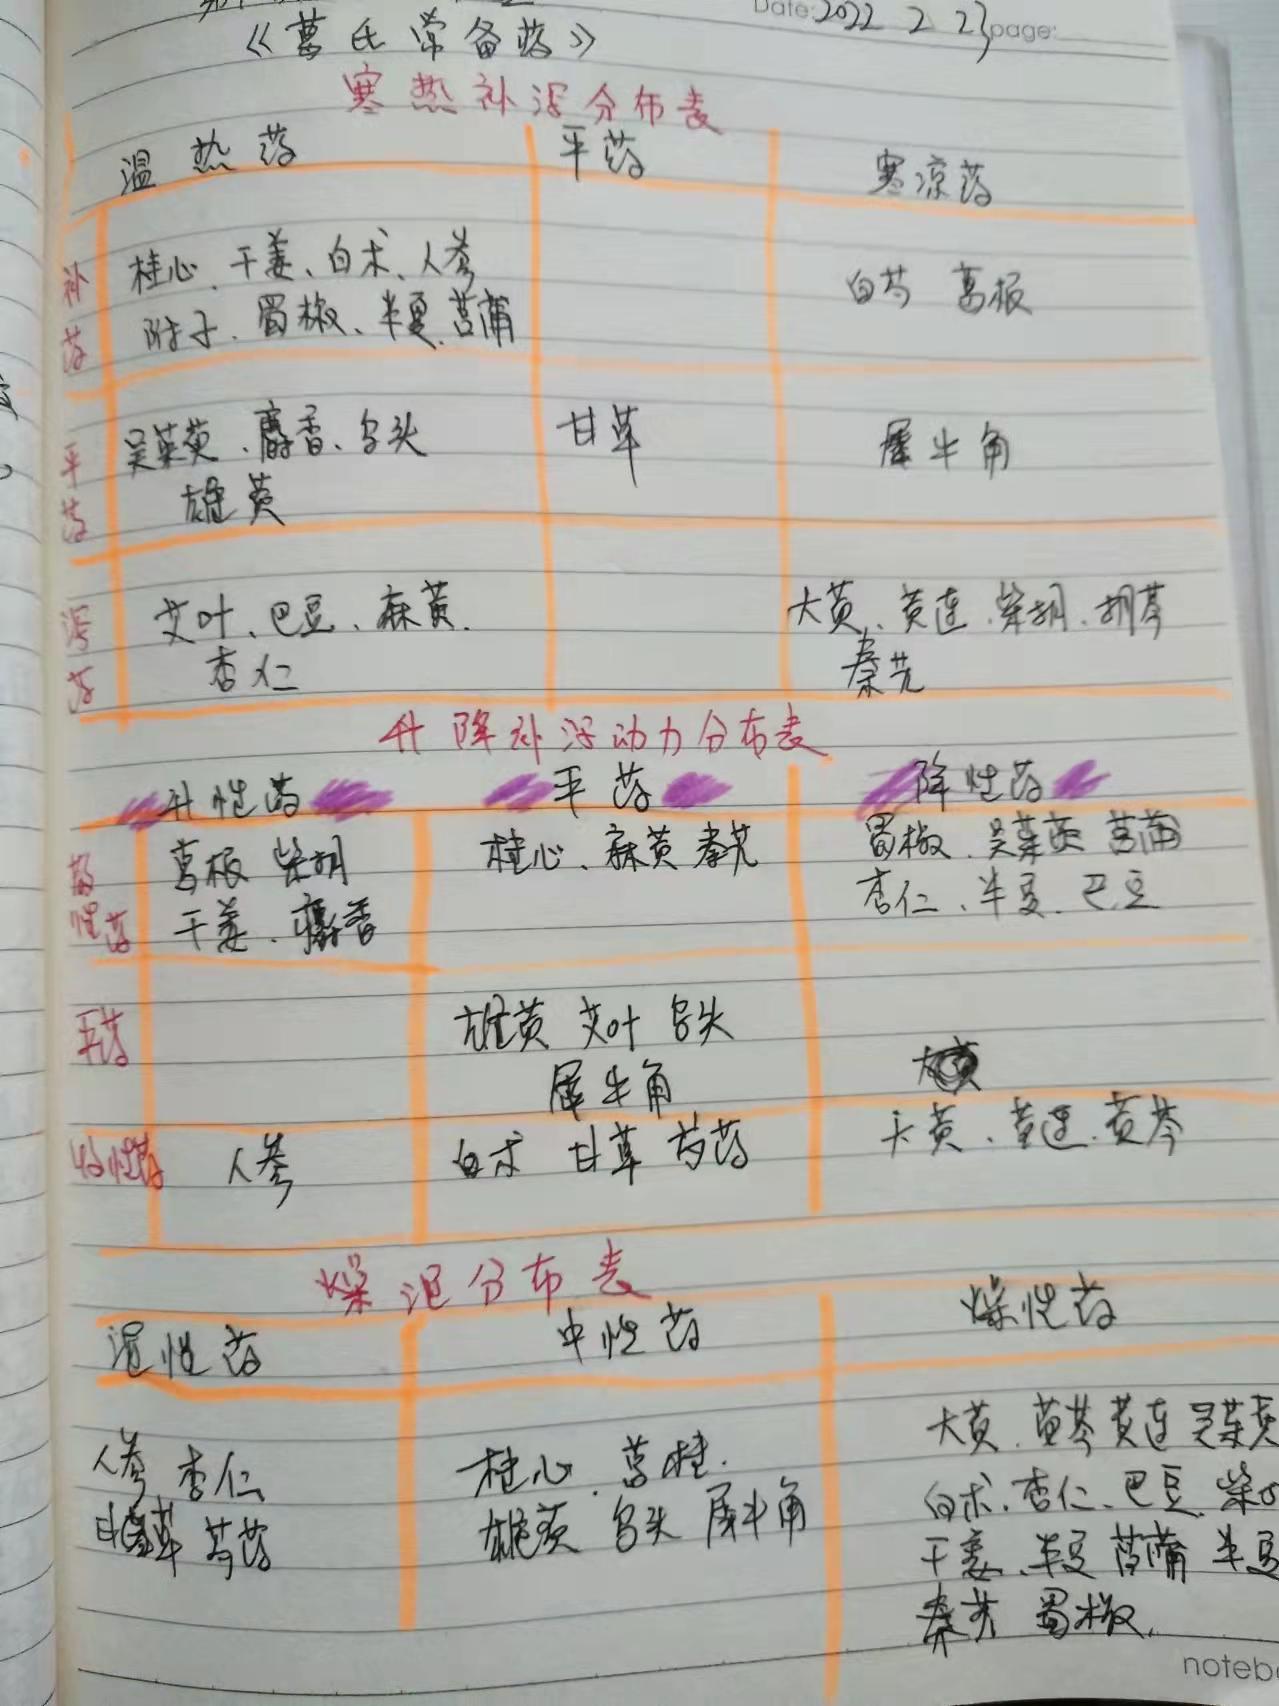 Date: 2022 2 23 page:
《葛氏常备药》
寒热补泻分布表
温热药 平药 寒凉药
补药 桂心、干姜、白术、人参 白芍 葛根
附子、蜀椒、半夏、菖蒲
平药 吴茱萸、麝香、乌头 甘草 犀牛角
雄黄
泻药 艾叶、巴豆、麻黄、 大黄、黄连、柴胡、胡芩
杏仁 秦艽
升降补泻动力分布表
升性药 平药 降性药
散性药 葛根 柴胡 桂心、麻黄 秦艽 蜀椒、吴茱萸 菖蒲
干姜、麝香 杏仁、半夏、巴豆
平药 雄黄 艾叶 乌头
犀牛角
收性药 人参 白术 甘草 芍药 大黄、黄连、黄芩
燥湿分布表
湿性药 中性药 燥性药
人参 杏仁 桂心、葛根、 大黄、黄芩 黄连 吴茱萸
甘草 芍药 雄黄 乌头 犀牛角 白术、杏仁、巴豆、柴
干姜、半夏 菖蒲 半夏
秦艽 蜀椒、
noteb